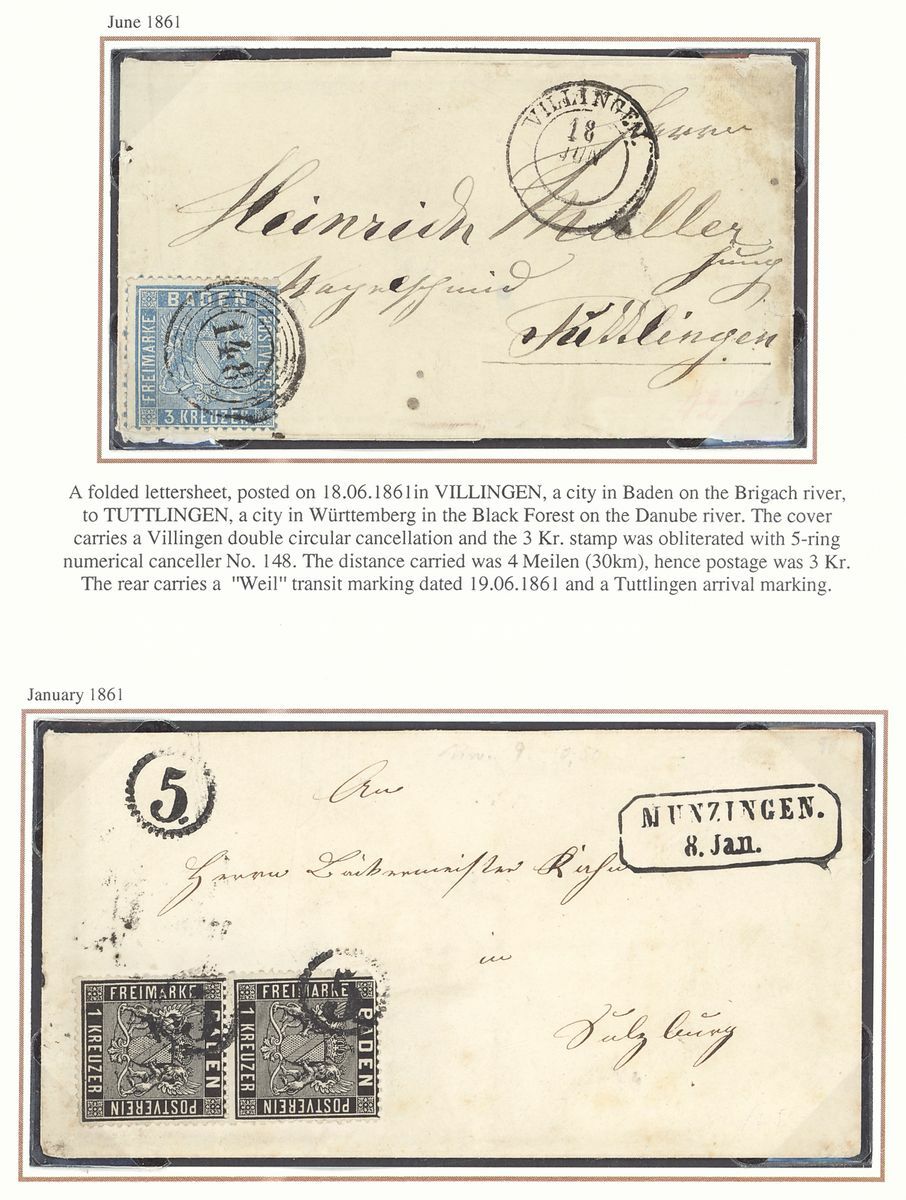 June 1861
VILLINGEN.
18
JUN
Herrn
Heinrich Müller
jung
Nagelschmied
Tuttlingen
BADEN
FREIMARKE
POSTVEREIN
3 KREUZER
148
A folded lettersheet, posted on 18.06.1861in VILLINGEN, a city in Baden on the Brigach river,
to TUTTLINGEN, a city in Württemberg in the Black Forest on the Danube river. The cover
carries a Villingen double circular cancellation and the 3 Kr. stamp was obliterated with 5-ring
numerical canceller No. 148. The distance carried was 4 Meilen (30km), hence postage was 3 Kr.
The rear carries a "Weil" transit marking dated 19.06.1861 and a Tuttlingen arrival marking.
January 1861
5.
An
MUNZINGEN.
8. Jan.
Herrn Bäckermeister
in
Sulzburg
FREIMARKE
1 KREUZER
BADEN
POSTVEREIN
FREIMARKE
1 KREUZER
BADEN
POSTVEREIN